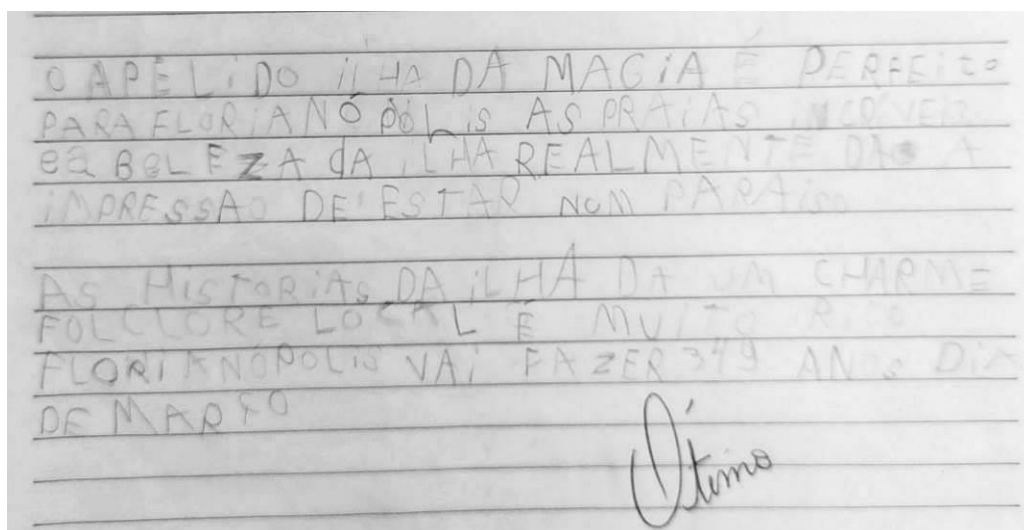 O APELIDO ILHA DA MAGIA É PERFEITO
PARA FLORIANÓPOLIS AS PRAIAS INCRÍVEIS
e a BELEZA dA ILHA REALMENTE DÃO A
IMPRESSÃO DE ESTAR NUM PARAISO
AS HISTORIAS DA ILHA DA UM CHARME
FOLCLORE LOCAL É MUITO RICO
FLORIANÓPOLIS VAI FAZER 349 ANOS DIA
DE MARÇO
Ótimo